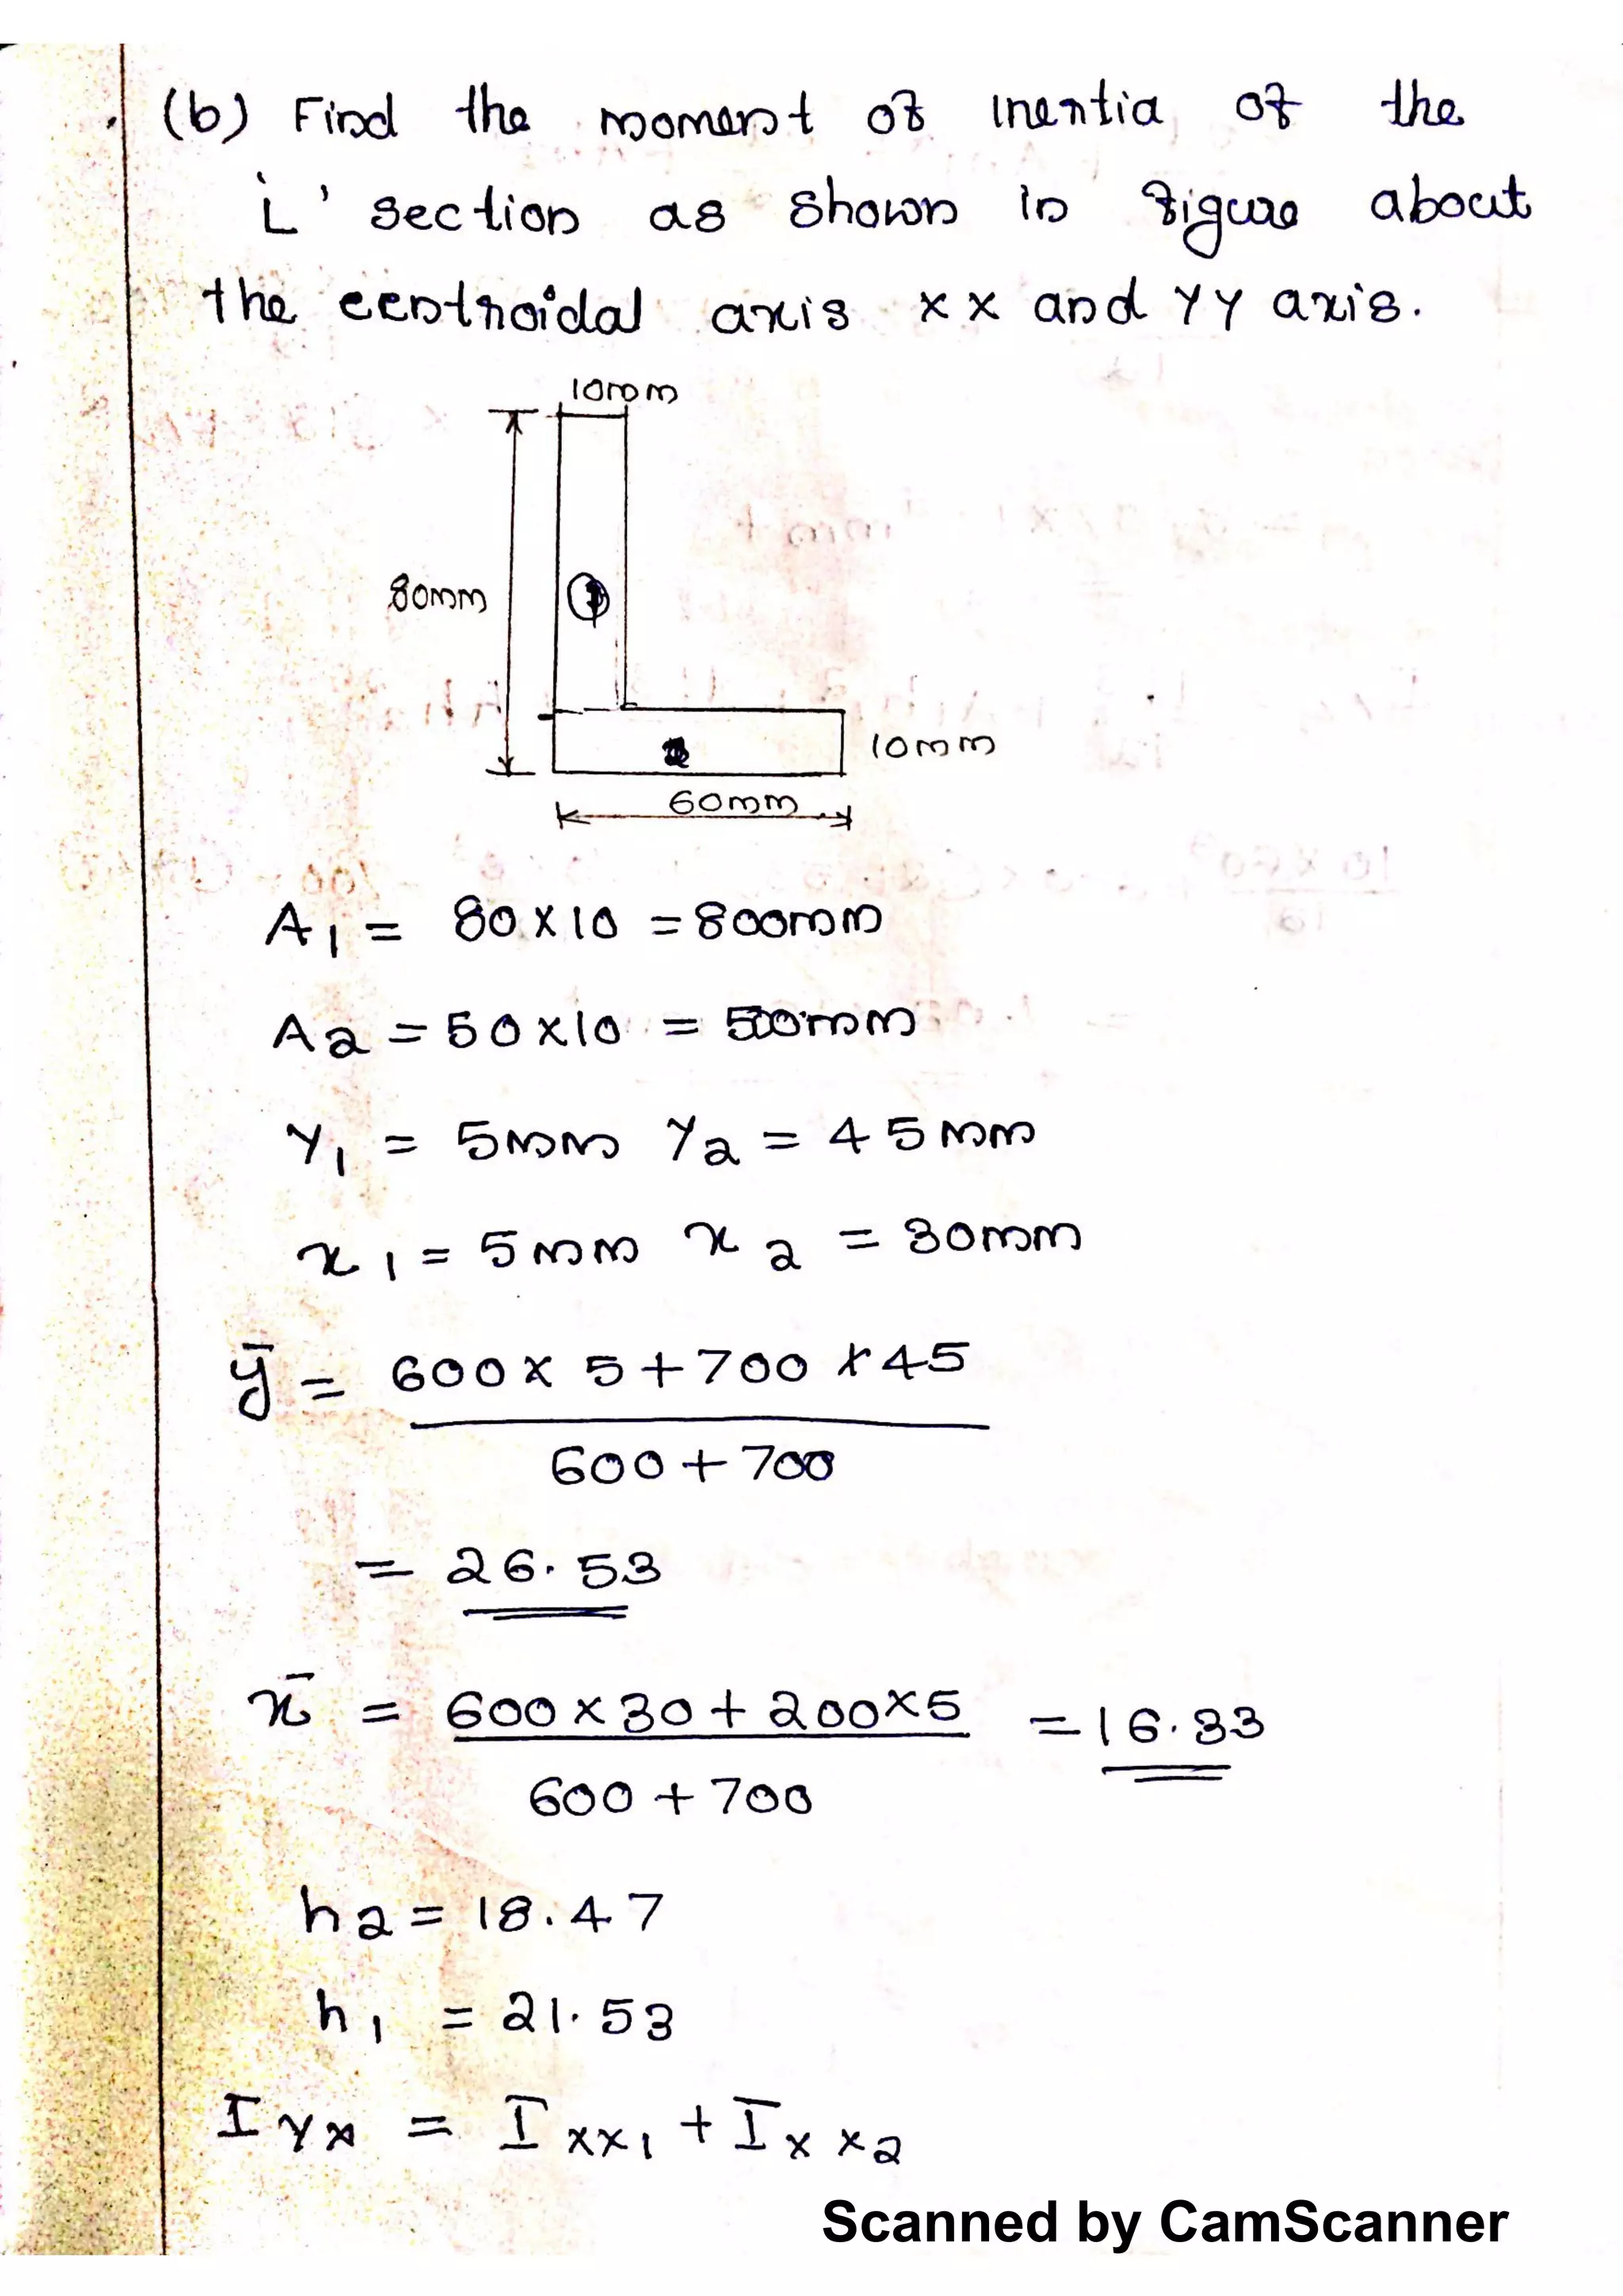 (b) Find the moment of inertia of the
'L' section as shown in figure about
the centroidal axis xx and YY axis.
10mm
80mm
1
10mm
60mm
A1 = 80 x 10 = 800mm
A2 = 50 x 10 = 500mm
Y1 = 5mm Y2 = 45mm
x1 = 5mm x2 = 30mm
ȳ = 600 x 5 + 700 x 45
600 + 700
= 26.53
x̄ = 600 x 30 + 200 x 5 = 16.33
600 + 700
h2 = 18.47
h1 = 21.53
I YX = I XX1 + I XX2
Scanned by CamScanner